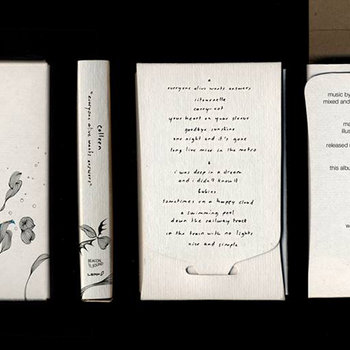 colleen
"everyone alive wants answers"
BEACON
SOUND
LEAF
a
everyone alive wants answers
ritournelle
carry-cot
your heart on your sleeve
goodbye sunshine
one night and it's gone
long live mice in the metro
b
i was deep in a dream
and i didn't know it
babies
sometimes on a happy cloud
a swimming pool
down the railway track
in the train with no lights
nice and simple
music by
mixed and
ma
illus
released
this album
w